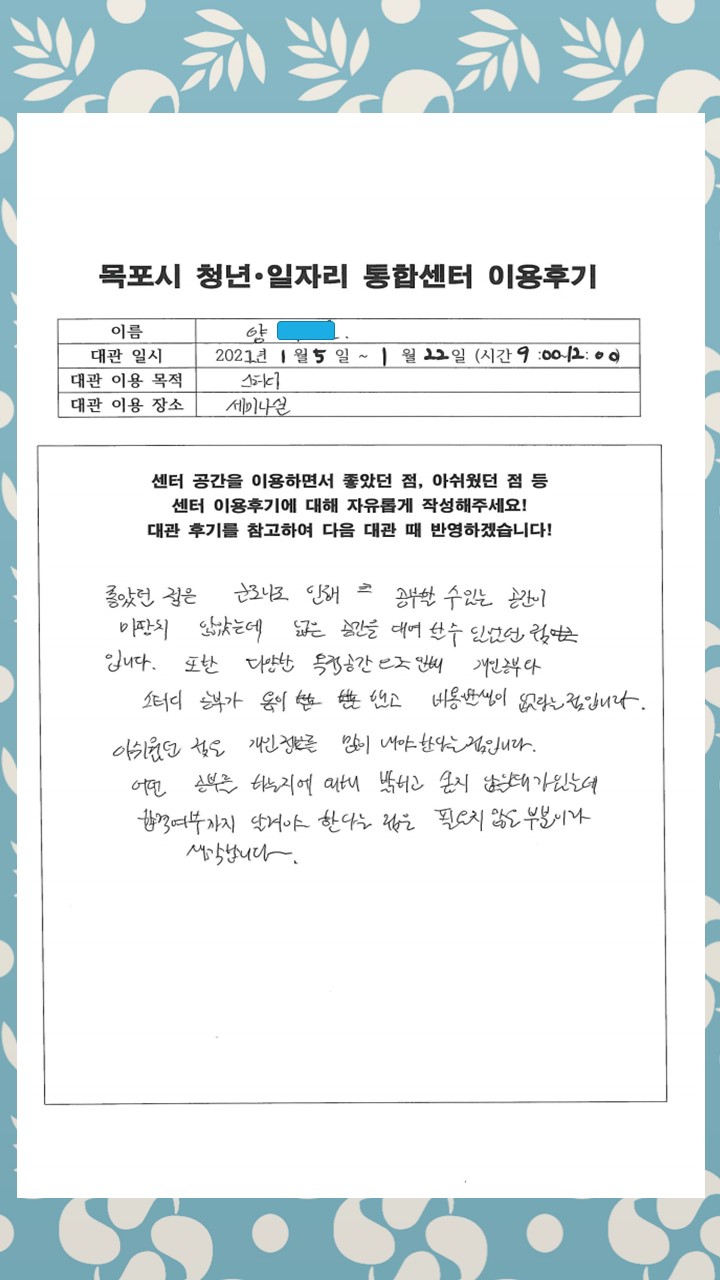 목포시 청년·일자리 통합센터 이용후기
이름 양
대관 일시 2021년 1월 5일 ~ 1월 22일 (시간 9:00~12:00)
대관 이용 목적 스터디
대관 이용 장소 세미나실
센터 공간을 이용하면서 좋았던 점, 아쉬웠던 점 등
센터 이용후기에 대해 자유롭게 작성해주세요!
대관 후기를 참고하여 다음 대관 때 반영하겠습니다!
좋았던 점은 코로나로 인해 공부할 수 있는 공간이
마땅치 않았는데 넓은 공간을 대여 할 수 있었던 점
입니다. 또한 다양한 개인공부나
스터디 공부가 용이 했고 비용발생이 없다는 점입니다.
아쉬웠던 점은 개인정보를 많이 내야 한다는 점입니다.
어떤 공부를 하는지에 대해 밝히고 싶지 않을때가 있는데
합격여부까지 알려야 한다는 점은 필요치 않은 부분이라
생각합니다.